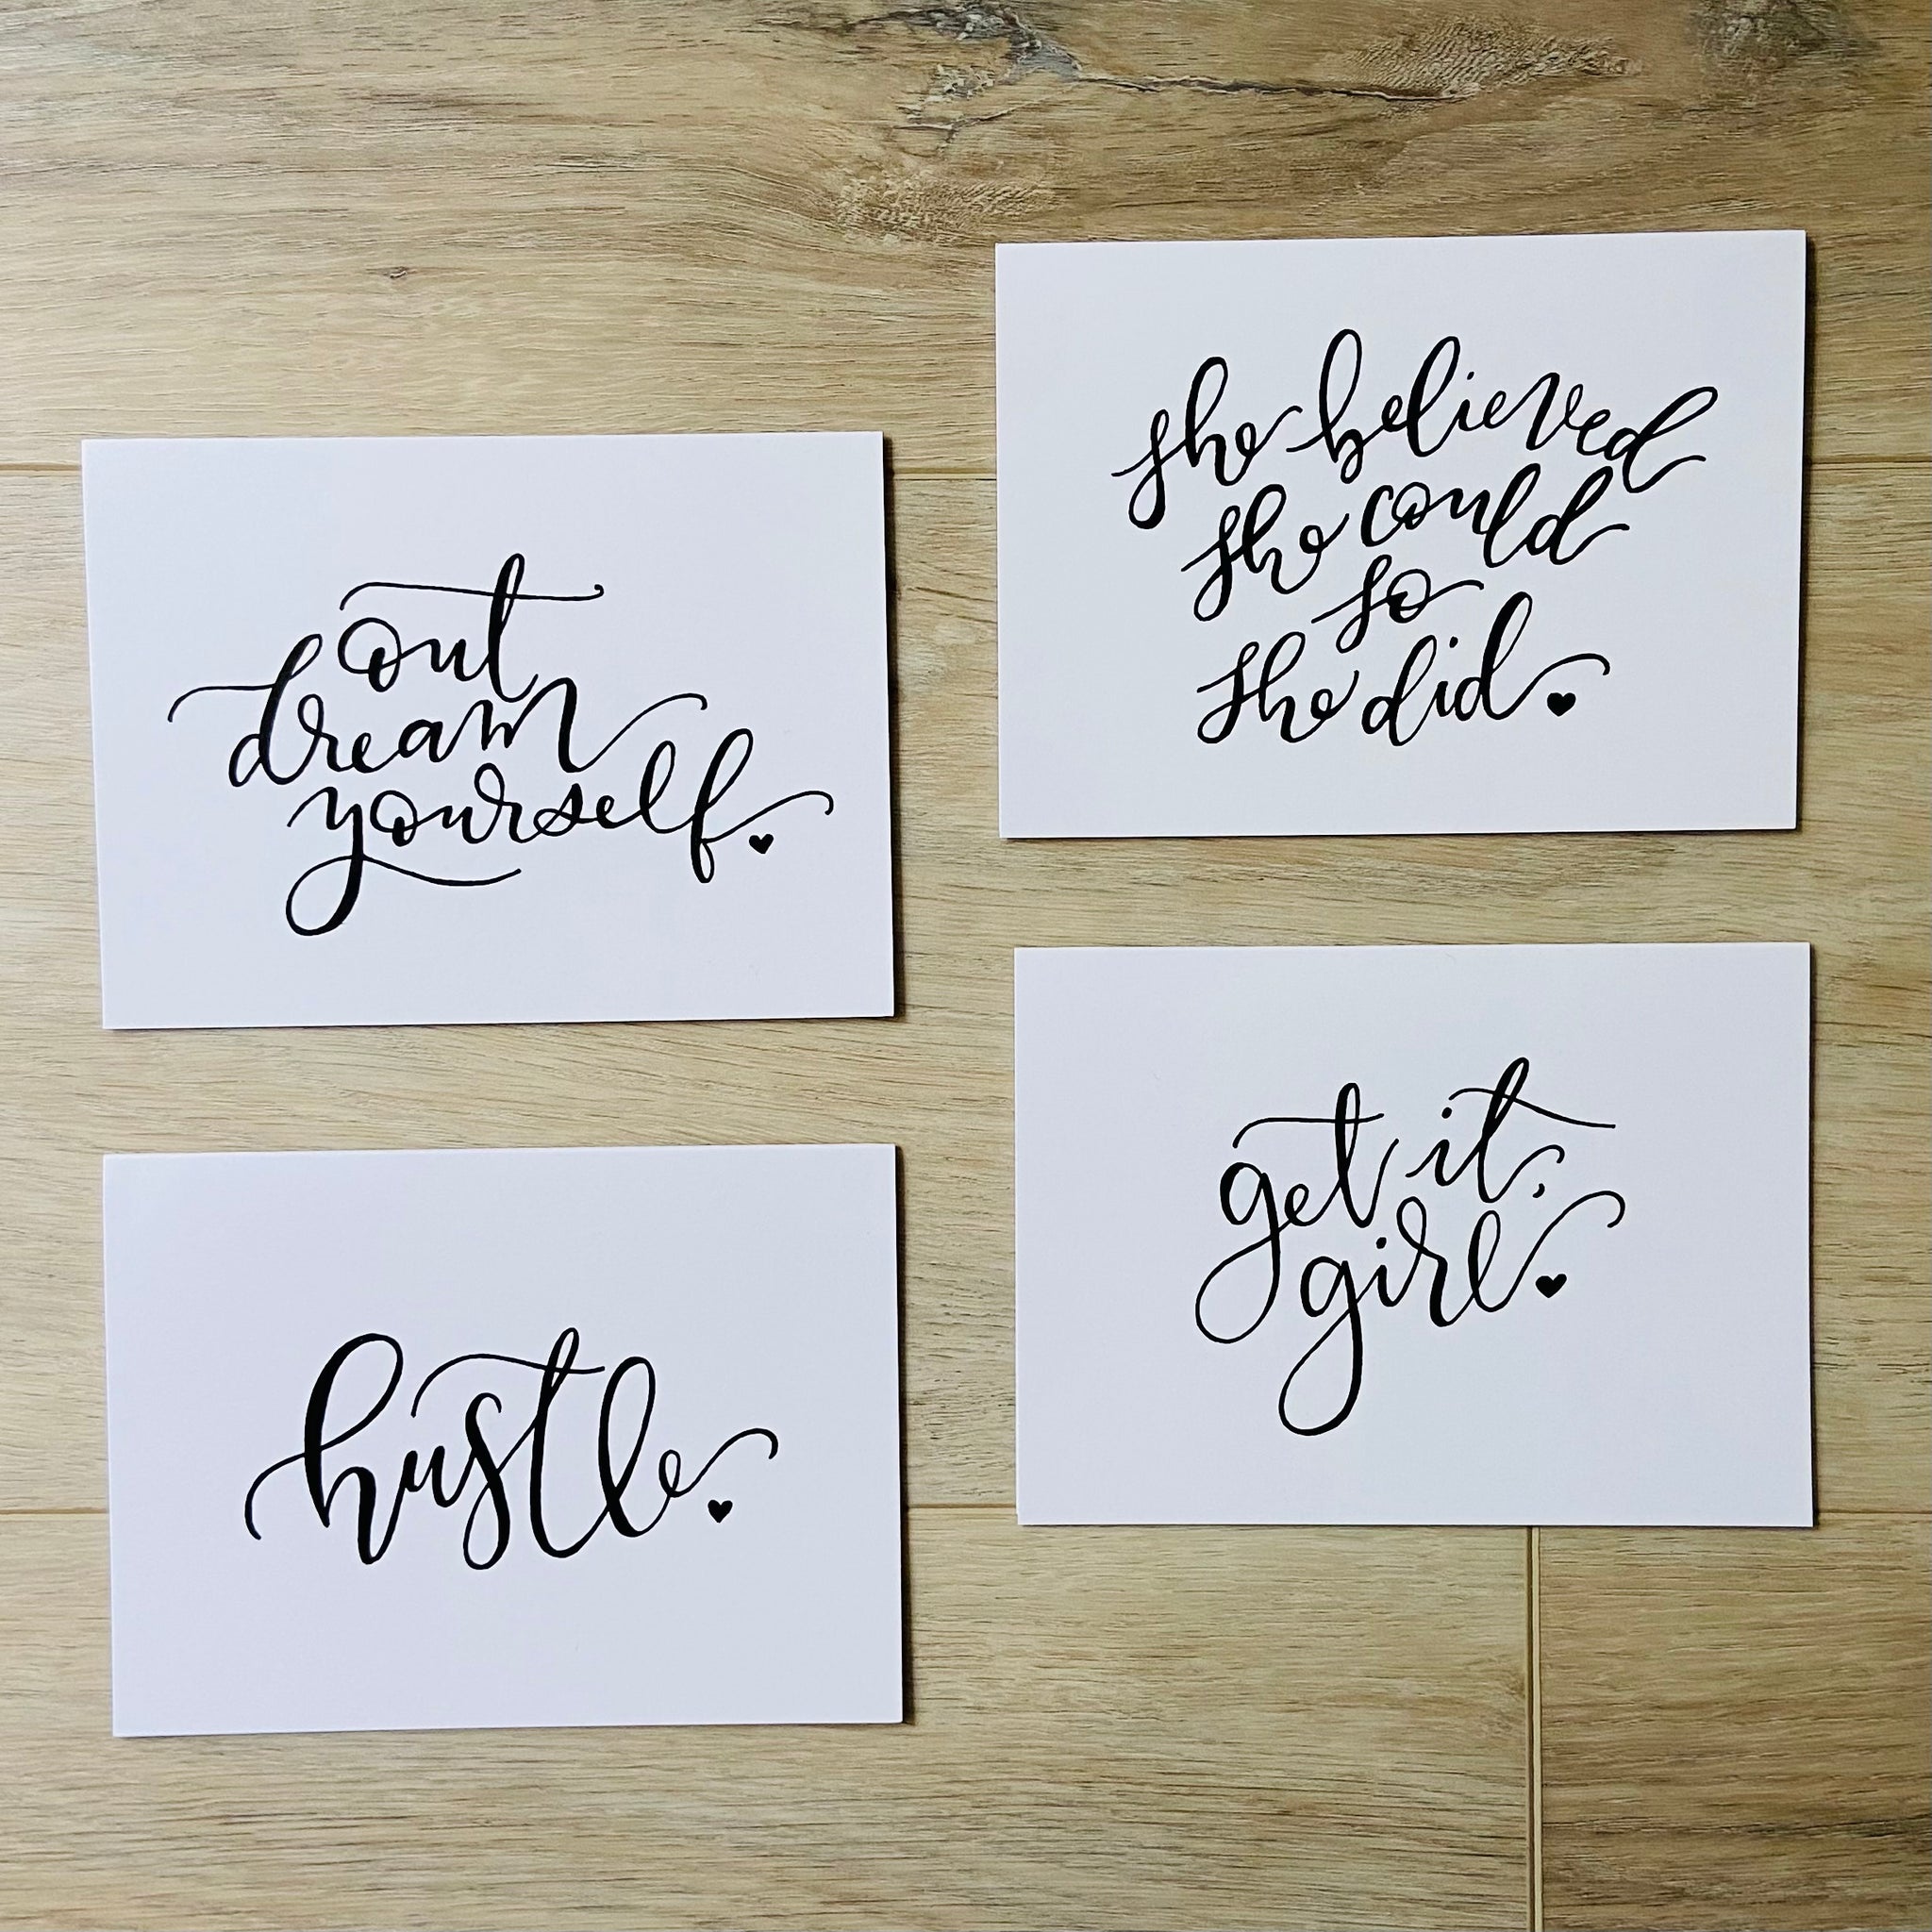 out
dream
yourself.
she believed
she could
so
she did.
hustle.
get it,
girl.